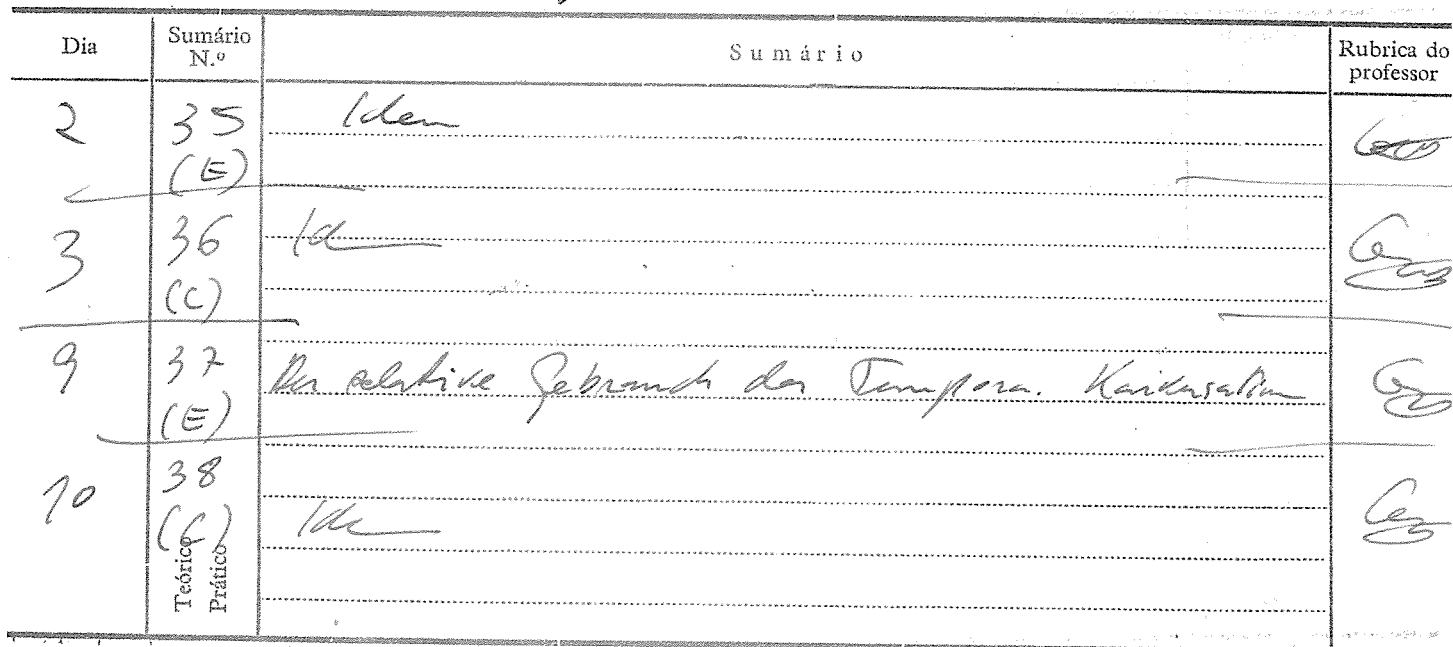 Dia Sumário N.º Sumário Rubrica do professor
2 35 Idem
(E)
3 36 Idem
(C)
9 37 Der relative Gebrauch der Tempora. Konversation
(E)
10 38
(C) Idem
Teórico
Prático